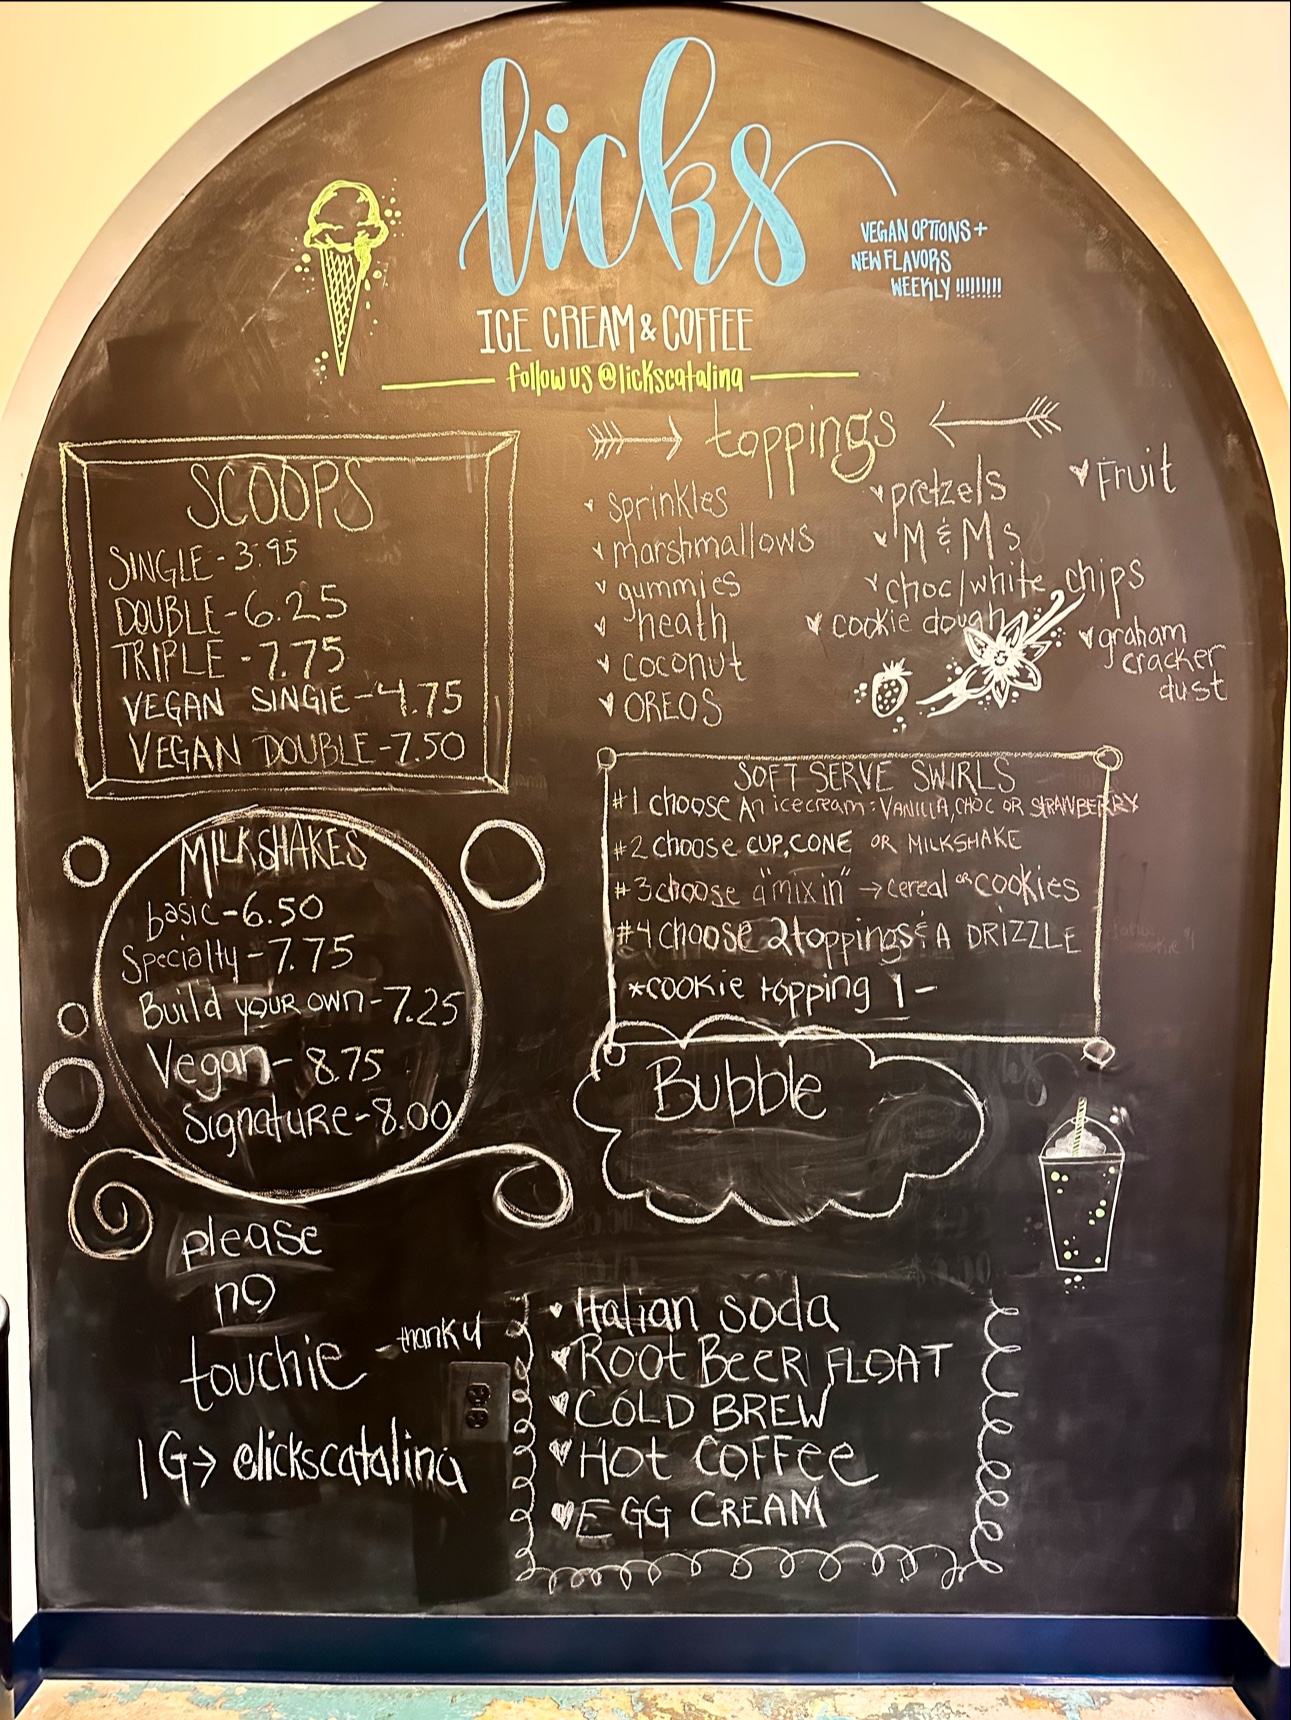 licks
VEGAN OPTIONS +
NEW FLAVORS
WEEKLY !!!!!!!!!
ICE CREAM & COFFEE
follow us @lickscatalina
SCOOPS
SINGLE - 3.95
DOUBLE - 6.25
TRIPLE - 7.75
VEGAN SINGlE - 4.75
VEGAN DOUBLE - 7.50
toppings
sprinkles
marshmallows
gummies
heath
coconut
OREOS
pretzels
M & Ms
choc/white chips
cookie dough
Fruit
graham
cracker
dust
MILKSHAKES
basic - 6.50
Specialty - 7.75
Build your own - 7.25
Vegan - 8.75
SignatuRe - 8.00
SOFT SERVE SWIRLS
#1 choose An icecream: VANILLA, CHOC OR STRAWBERRY
#2 choose CUP, CONE OR MILKSHAKE
#3 choose a "mix in" → cereal or COOKIES
#4 choose 2 toppings & A DRIZZLE
*cookie topping 1-
Bubble
please
no
touchie - thank u
IG > @lickscatalina
Italian soda
ROOt BeeR FLOAT
COLD BREW
HOt COFFee
EGG CREAM